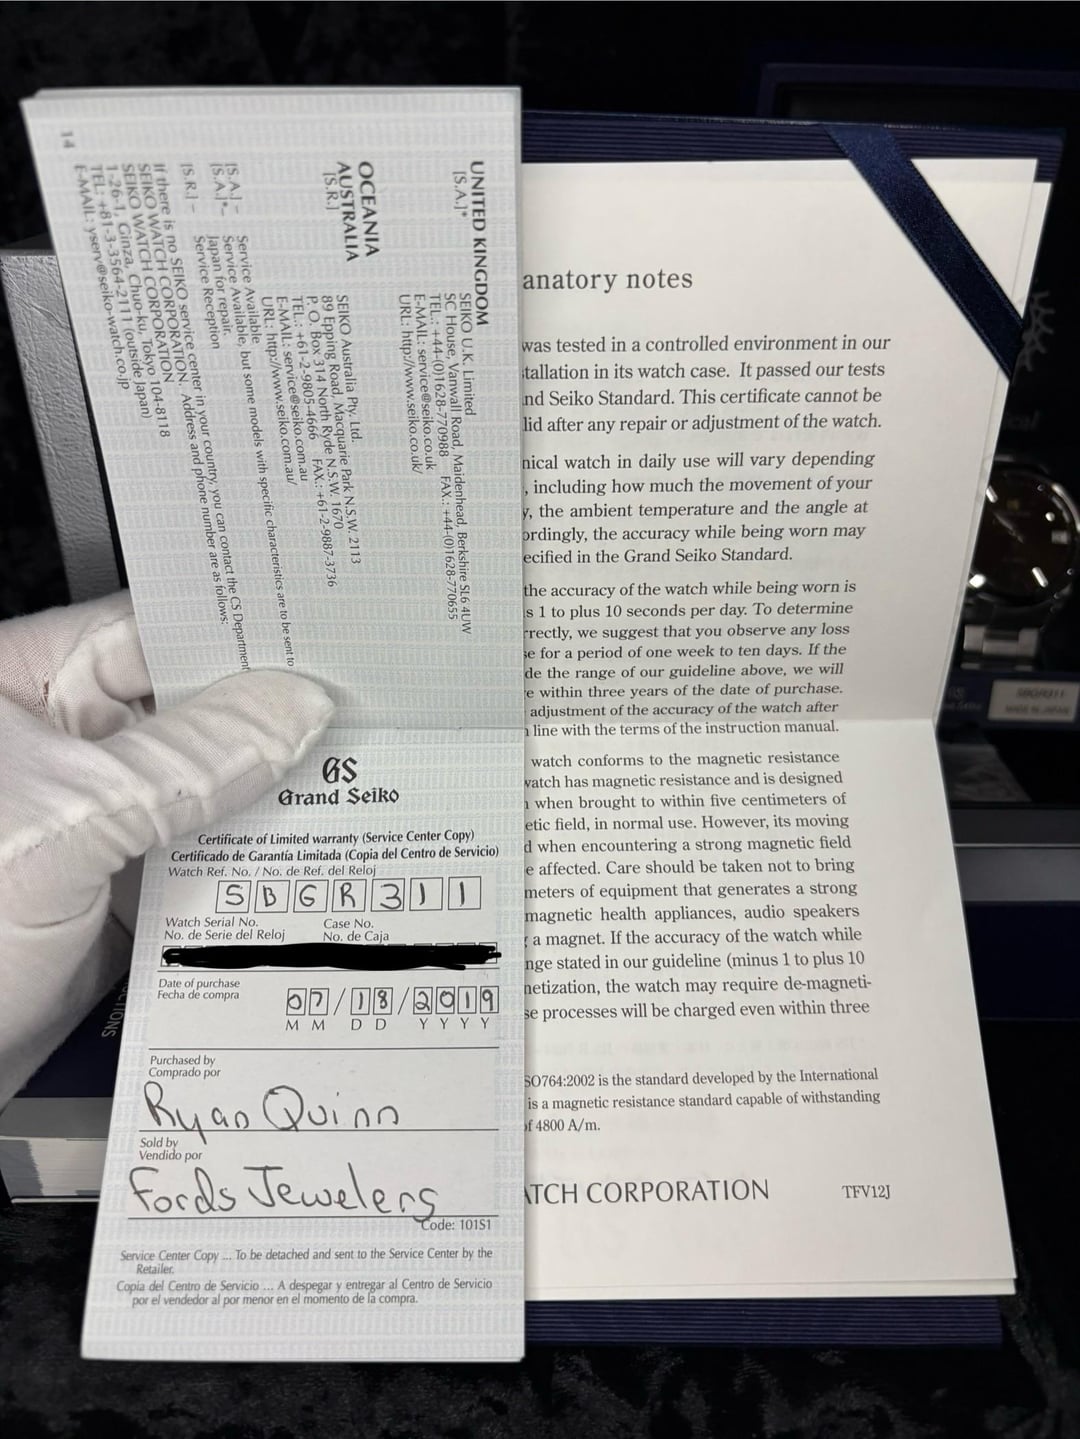 14
UNITED KINGDOM
[S.A.]*
SEIKO U.K. Limited
SC House, Vanwall Road, Maidenhead, Berkshire SL6 4UW
TEL.: +44-(0)1628-770988 FAX.: +44-(0)1628-770655
E-MAIL: service@seiko.co.uk
URL: http://www.seiko.co.uk/
OCEANIA
AUSTRALIA
[S.R.]
SEIKO Australia Pty. Ltd.
89 Epping Road, Macquarie Park N.S.W. 2113
P. O. Box 314 North Ryde N.S.W. 1670
TEL.: +61-2-9805-4666 FAX.: +61-2-9887-3736
E-MAIL: service@seiko.com.au
URL: http://www.seiko.com.au/
[S.A.] – Service Available
[S.A.]*– Service Available, but some models with specific characteristics are to be sent to
Japan for repair.
[S.R.] – Service Reception
If there is no SEIKO service center in your country, you can contact the CS Department
SEIKO WATCH CORPORATION. Address and phone number are as follows:
SEIKO WATCH CORPORATION
1-26-1, Ginza, Chuo-ku, Tokyo 104-8118
TEL: +81-3-3564-2111 (outside Japan)
E-MAIL: yserv@seiko-watch.co.jp
GS
Grand Seiko
Certificate of Limited warranty (Service Center Copy)
Certificado de Garantía Limitada (Copia del Centro de Servicio)
Watch Ref. No. / No. de Ref. del Reloj
SBGR311
Watch Serial No. Case No.
No. de Serie del Reloj No. de Caja
Date of purchase
Fecha de compra
07/18/2019
M M D D Y Y Y Y
Purchased by
Comprado por
Ryan Quinn
Sold by
Vendido por
Fords Jewelers
Code: 101S1
Service Center Copy ... To be detached and sent to the Service Center by the
Retailer.
Copia del Centro de Servicio ... A despegar y entregar al Centro de Servicio
por el vendedor al por menor en el momento de la compra.
anatory notes
was tested in a controlled environment in our
tallation in its watch case. It passed our tests
nd Seiko Standard. This certificate cannot be
lid after any repair or adjustment of the watch.
nical watch in daily use will vary depending
, including how much the movement of your
y, the ambient temperature and the angle at
ordingly, the accuracy while being worn may
ecified in the Grand Seiko Standard.
the accuracy of the watch while being worn is
s 1 to plus 10 seconds per day. To determine
rrectly, we suggest that you observe any loss
se for a period of one week to ten days. If the
de the range of our guideline above, we will
e within three years of the date of purchase.
adjustment of the accuracy of the watch after
n line with the terms of the instruction manual.
watch conforms to the magnetic resistance
vatch has magnetic resistance and is designed
n when brought to within five centimeters of
etic field, in normal use. However, its moving
d when encountering a strong magnetic field
e affected. Care should be taken not to bring
meters of equipment that generates a strong
magnetic health appliances, audio speakers
a magnet. If the accuracy of the watch while
nge stated in our guideline (minus 1 to plus 10
netization, the watch may require de-magneti-
se processes will be charged even within three
SO764:2002 is the standard developed by the International
is a magnetic resistance standard capable of withstanding
of 4800 A/m.
ATCH CORPORATION TFV12J
CTIONS
SBGR311
MADE IN JAPAN